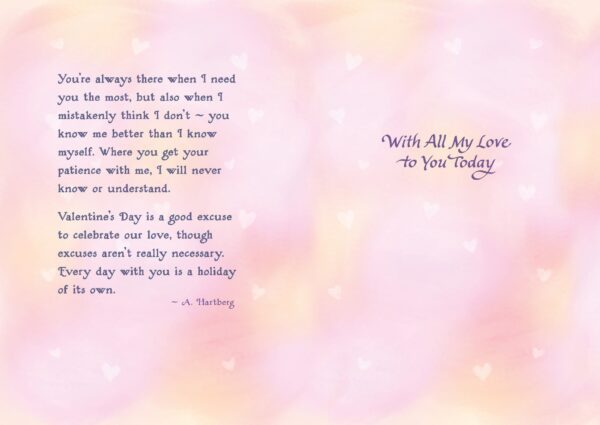 You're always there when I need
you the most, but also when I
mistakenly think I don't ~ you
know me better than I know
myself. Where you get your
patience with me, I will never
know or understand.
Valentine's Day is a good excuse
to celebrate our love, though
excuses aren't really necessary.
Every day with you is a holiday
of its own.
~ A. Hartberg
With All My Love
to You Today